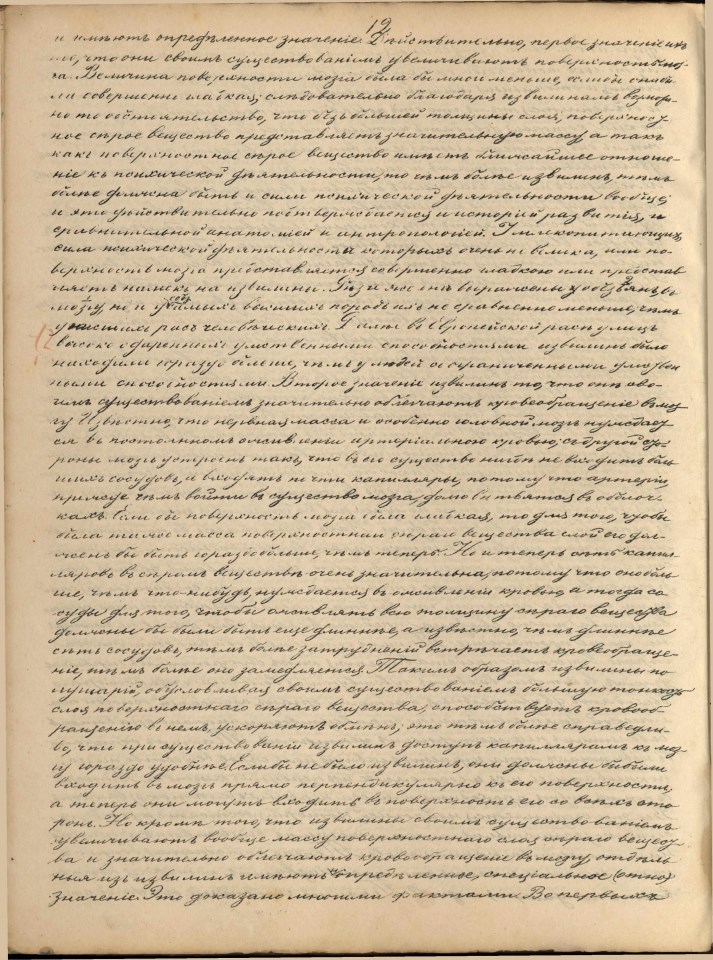 12
и имѣютъ опредѣленное значеніе. Дѣйствительно, первое значеніе ихъ
то, что они своимъ существованіемъ увеличиваютъ поверхность моз-
га. Величина поверхности мозга была бы много меньше, если бы она была
совершенно гладкая; слѣдовательно благодаря извилинамъ
но то обстоятельство, что безъ большей толщины слоя, поверхност-
ное сѣрое вещество представляетъ значительную массу, а такъ
какъ поверхностное сѣрое вещество имѣетъ ближайшее отноше-
ніе къ психической дѣятельности, то чѣмъ болѣе извилинъ, тѣмъ
болѣе должна быть и сила психической дѣятельности вообще;
и это дѣйствительно подтверждается и исторіей развитія, и
сравнительной анатоміей и антропологіей. У млекопитающихъ,
сила психической дѣятельности которыхъ очень не велика, или по-
верхность мозга представляется совершенно гладкою или представ-
ляетъ намекъ на извилины. Позже же они выражены у обезьянъ, въ
мозгу, но и у самыхъ высшихъ породъ ихъ не сравненно меньше, чѣмъ
у низшихъ расъ человѣческихъ. Далѣе въ Европейской расѣ у лицъ
высоко одаренныхъ умственными способностями извилинъ было
находили гораздо больше, чѣмъ у людей съ ограниченными умствен-
ными способностями. Второе значеніе извилинъ то, что онѣ сво-
имъ существованіемъ значительно облегчаютъ кровеобращеніе въ моз-
гу. Извѣстно, что нервная масса и особенно головной мозгъ нуждает-
ся въ постоянномъ оживленіи артеріальною кровью; съ другой сто-
роны мозгъ устроенъ такъ, что въ его существо нигдѣ не входитъ боль-
шихъ сосудовъ, а входятъ почти капилляры, потому что артеріи
прежде чѣмъ войти въ существо мозга, долго вѣтвятся въ оболоч-
кахъ. Если бы поверхность мозга была гладкая, то для того, чтобы
была та же масса поверхностнаго сѣраго вещества слой его дол-
женъ бы быть гораздо больше, чѣмъ теперь. Но и теперь сѣть капил-
ляровъ въ сѣромъ веществѣ очень значительна, потому что оно боль-
ше, чѣмъ что-нибудь, нуждается въ оживленіи кровью, а тогда со-
суды для того, чтобы оживлять всю толщину сѣраго вещества
должны бы были быть еще длиннѣе, а извѣстно, чѣмъ длиннѣе
сѣть сосудовъ, тѣмъ болѣе затрудненій встрѣчаетъ кровеобраще-
ніе, тѣмъ болѣе оно замедляется. Такимъ образомъ извилины по-
лушарій, обусловливая своимъ существованіемъ большую тонкость
слоя поверхностнаго сѣраго вещества, способствуютъ кровооб-
ращенію въ немъ, ускоряютъ обмѣнъ; это тѣмъ болѣе справедли-
во, что при существованіи извилинъ доступъ капиллярамъ къ моз-
гу гораздо удобнѣе. Если бы не было извилинъ, они должны бы были
входить въ мозгъ прямо перпендикулярно къ его поверхности,
а теперь они могутъ входить въ поверхность его со всѣхъ сто-
ронъ. Но кромѣ того, что извилины своимъ существованіемъ
увеличиваютъ вообще массу поверхностнаго слоя сѣраго вещест-
ва и значительно облегчаютъ кровеобращеніе въ мозгу, отдѣль-
ныя изъ извилинъ имѣютъ опредѣленное, спеціальное
значеніе. Это доказано многими фактами. Во первыхъ